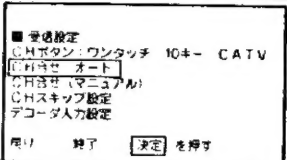 ■ 受信設定
CHボタン:ワンタッチ 10キー CATV
CH合せ オート
CH合せ (マニュアル)
CHスキップ設定
デコーダ入力設定
戻り 終了 決定 を押す